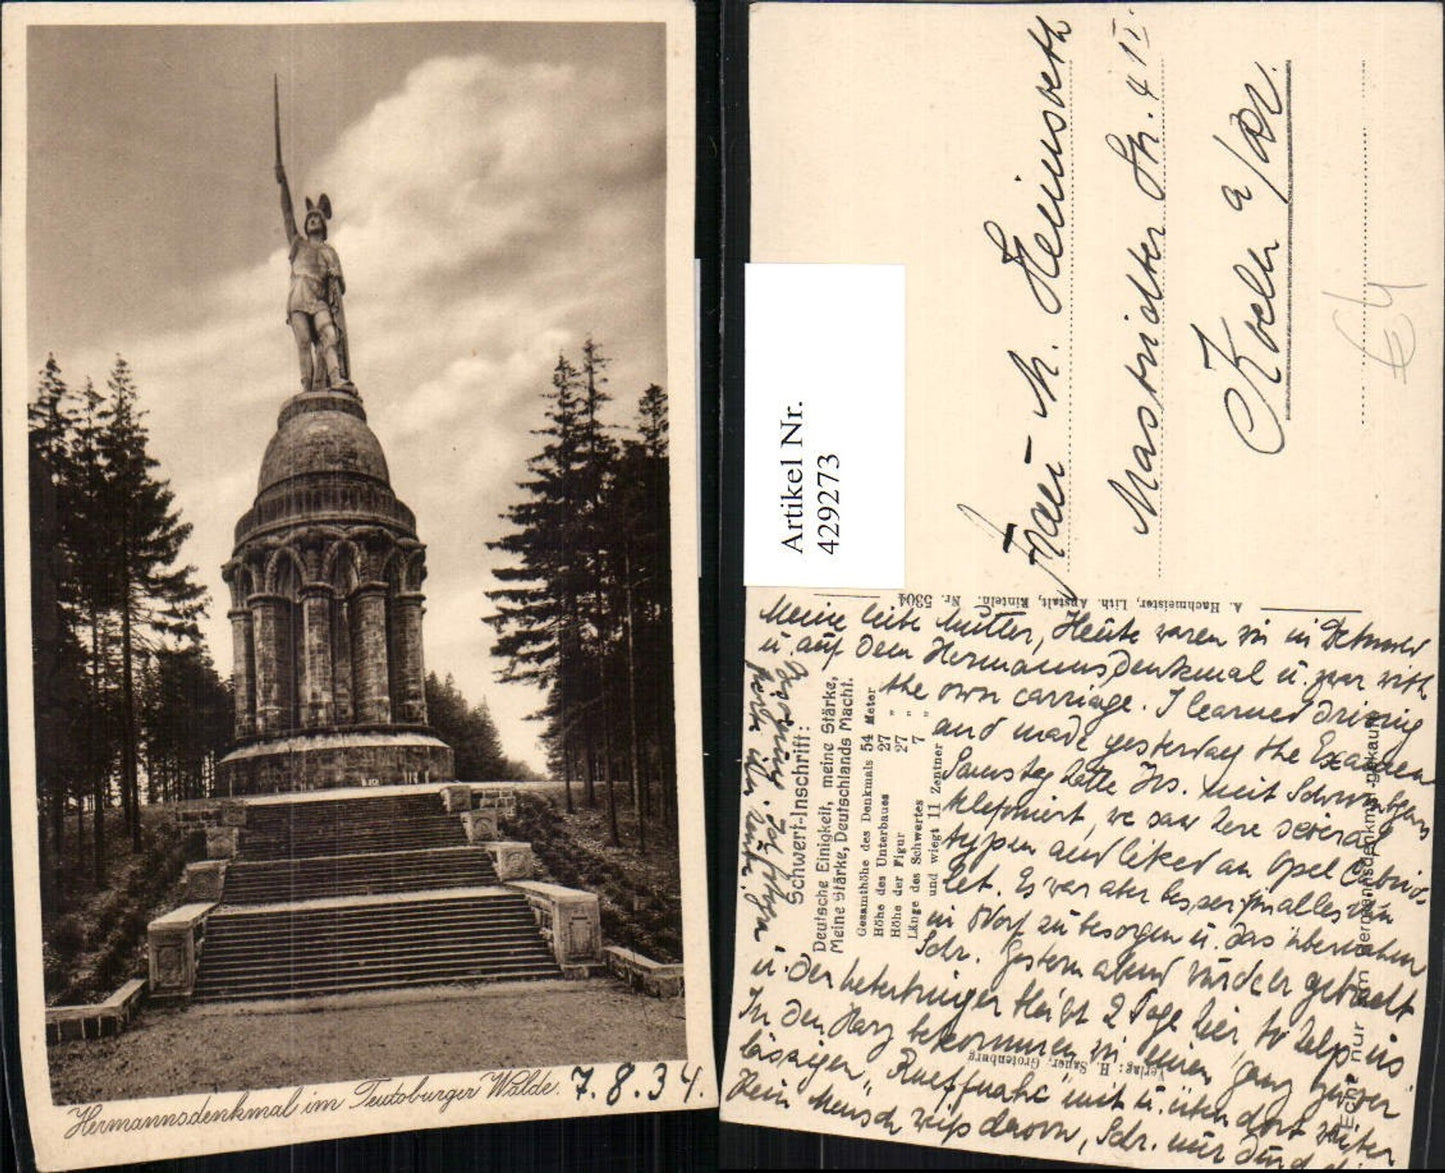 Hermannsdenkmal im Teutoburger Walde.
7.8.34.
Artikel Nr.
429273
Frau M. Heinsoeth
Mastrichter Str. 4 II
Koeln a/Rh.
€ 4
A. Hachmeister, Lith. Anstalt, Rinteln. Nr. 5304
Schwert-Inschrift:
Deutsche Einigkeit, meine Stärke,
Meine Stärke, Deutschlands Macht.
Gesamthöhe des Denkmals 54 Meter
Höhe des Unterbaues 27 "
Höhe der Figur 27 "
Länge des Schwertes 7 "
und wiegt 11 Zentner
Verlag: H. Sauer, Grotenburg
Echt nur am Hermannsdenkmal gekauft
Meine liebe Mutter, Heute waren wir in Detmold
u. auf dem Hermannsdenkmal u. zwar with
the own carriage. I learned driving
and made yesterday the Examen
Samstag hatte
telefoniert, we saw here several
typen and liked an Opel Cabrio-
let. Es war aber besser alles
in zu besorgen u. das übernahm
Schr. Gestern abend wurde er gebracht
u. der bleibt 2 Tage hier to help us
In den Harz bekommen wir einen ganz zuver
lässigen mit u. dort weiter
Kein Mensch weiß davon, Schr. nur